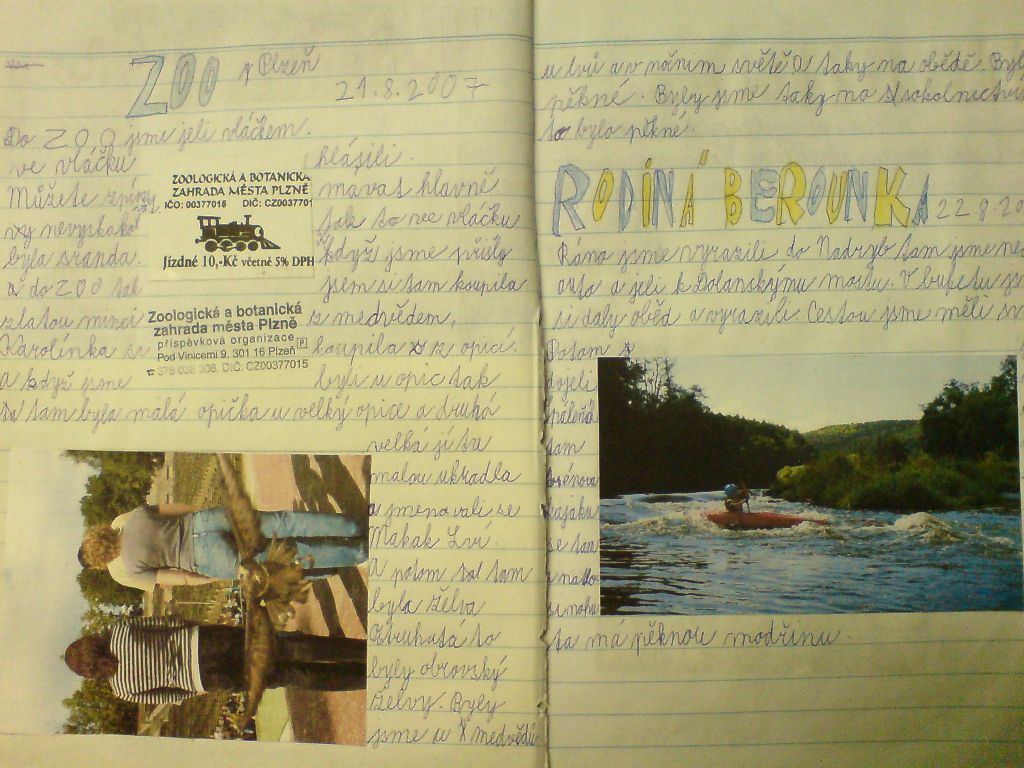 ZOO v Plzeň
21.8.2007
Do ZOO jsme jeli vláčkem.
ve vláčku hlásili.
Můžete mávat hlavně
vy nevyskakovat tak to ve vláčku
byla sranda. když jsme přišly
a do ZOO tak jsem si tam koupila
zlatou minci z medvědem,
Karolínka si koupila z opicí.
A když jsme byli u opic tak
tam byla malá opička u velký opice a druhá
velká jí tu
malou ukradla
a jmenovali se
Makak Lví.
A potom tam
byla želva
Ztruhatá to
byly obrovský
želvy. Byly
jsme u medvědů
ZOOLOGICKÁ A BOTANICKÁ
ZAHRADA MĚSTA PLZNĚ
IČO: 00377015 DIČ: CZ0037701
Jízdné 10,-Kč včetně 5% DPH
Zoologická a botanická
zahrada města Plzně
příspěvková organizace P
Pod Vinicemi 9, 301 16 Plzeň
378 038 308, DIČ: CZ00377015
u lvů a v nočním světě a taky na obědě. Byl
pěkné. Byly jsme taky na sokolnictví
to bylo pěkné.
RODINÁ BEROUNKA
22.8.20
Ráno jsme vyrazili do Nadryb tam jsme ne
auta a jeli k Dolanskýmu mostu. V bufetu js
si daly oběd a vyrazili. Cestou jsme měli
Potom
dojeli
tam
kajaka
se tam
si nohu
ta má pěknou modřinu.